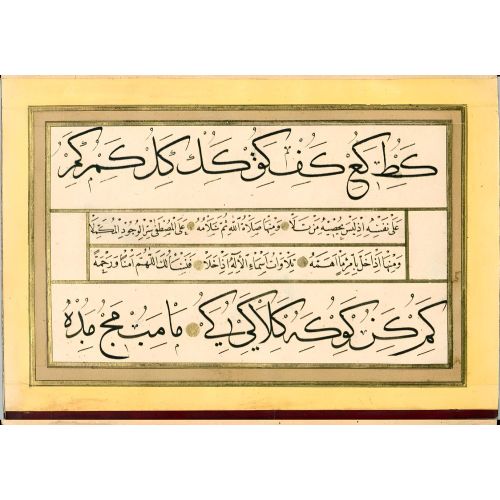 كط كع كف كق كك كل كم كم
على نفسه اذ ليس يحصيه من تلا ومنها صلاة الله ثم سلامه على المصطفى سر الوجود المكملا
ومنها اذا حل ما اهمه تلاوات اسماء الاله اذا خلا اللهم امنا ورحمة
كم كن كو كه كلا كى كے ما مب مج مد مه